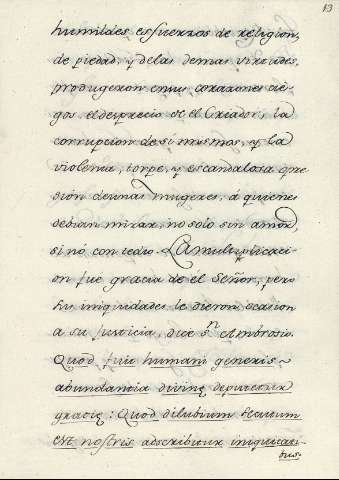 13
humildes esfuerzos de religion,
de piedad, y delas demas virtudes,
produgeron en sus corazones cie-
gos el desprecio de el Criador, la
corrupcion de si mismos, y la
violenta, torpe, y escandalosa opre-
sion de unas mugeres, á quienes
debian mirar, no solo sin amor,
sinó con tedio. La multiplicaci-
on fue gracia de el Señor, pero
su iniquidades le dieron ocasion
a su justicia, dice Sn Ambrosio.
Quod fuit humani generis
abundantia divinę deputetur
gratię: Quod dilubium secutum
est nostris adscribitur iniquitati-
bus.